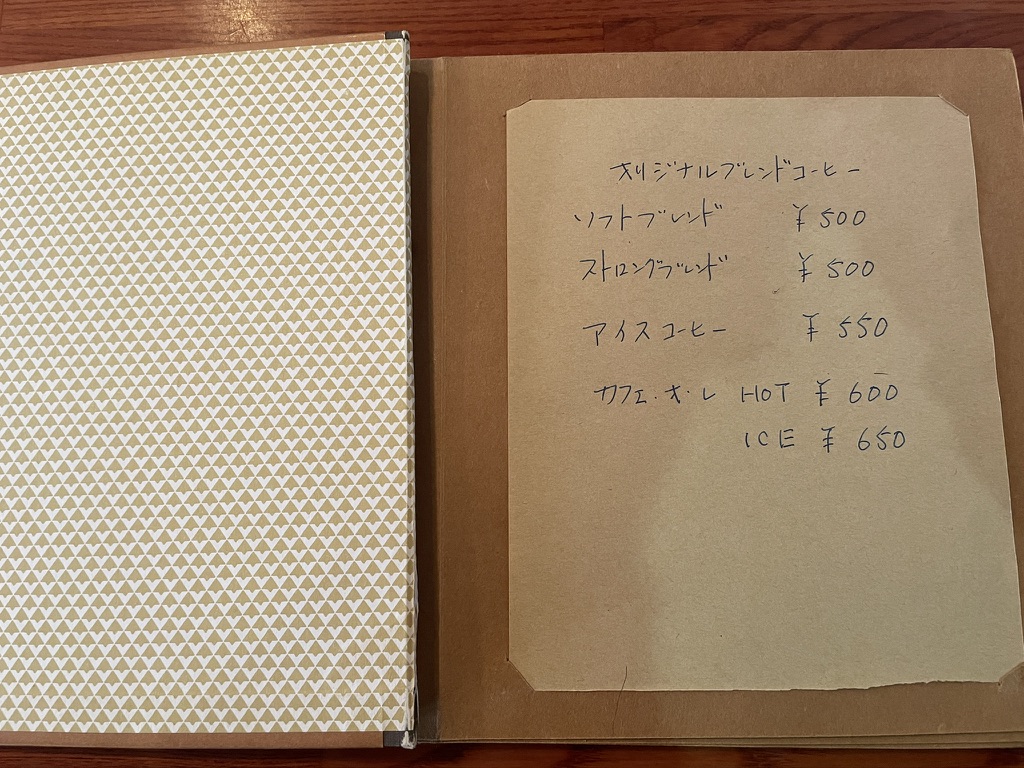 オリジナルブレンドコーヒー
ソフトブレンド ¥500
ストロングブレンド ¥500
アイスコーヒー ¥550
カフェ・オ・レ HOT ¥600
ICE ¥650